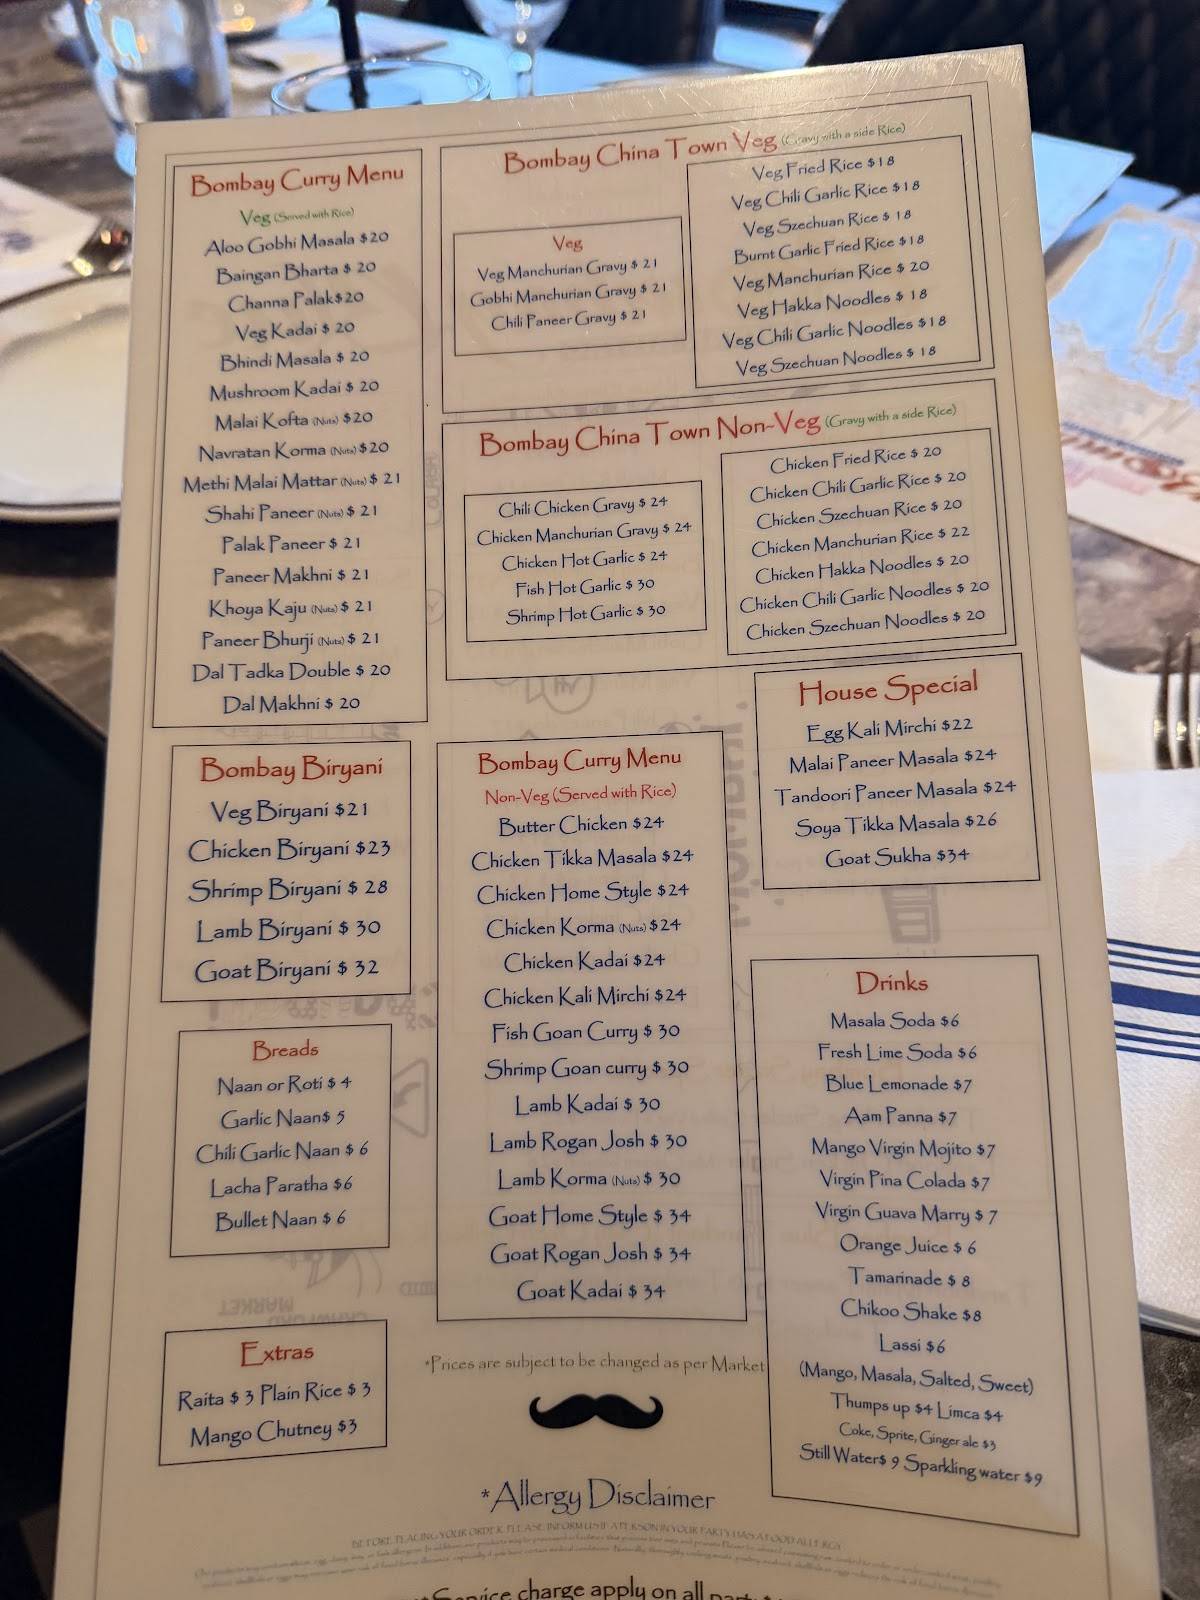 Bombay Curry Menu
Veg (Served with Rice)
Aloo Gobhi Masala $20
Baingan Bharta $ 20
Channa Palak$20
Veg Kadai $ 20
Bhindi Masala $ 20
Mushroom Kadai $ 20
Malai Kofta (Nuts) $20
Navratan Korma (Nuts) $20
Methi Malai Mattar (Nuts) $ 21
Shahi Paneer (Nuts) $ 21
Palak Paneer $ 21
Paneer Makhni $ 21
Khoya Kaju (Nuts) $ 21
Paneer Bhurji (Nuts) $ 21
Dal Tadka Double $ 20
Dal Makhni $ 20
Bombay Biryani
Veg Biryani $21
Chicken Biryani $23
Shrimp Biryani $ 28
Lamb Biryani $ 30
Goat Biryani $ 32
Breads
Naan or Roti $ 4
Garlic Naan$ 5
Chili Garlic Naan $ 6
Lacha Paratha $6
Bullet Naan $ 6
Extras
Raita $ 3 Plain Rice $ 3
Mango Chutney $3
Bombay China Town Veg (Gravy with a side Rice)
Veg
Veg Manchurian Gravy $ 21
Gobhi Manchurian Gravy $ 21
Chili Paneer Gravy $ 21
Veg Fried Rice $18
Veg Chili Garlic Rice $18
Veg Szechuan Rice $ 18
Burnt Garlic Fried Rice $18
Veg Manchurian Rice $ 20
Veg Hakka Noodles $ 18
Veg Chili Garlic Noodles $18
Veg Szechuan Noodles $ 18
Bombay China Town Non-Veg (Gravy with a side Rice)
Chili Chicken Gravy $ 24
Chicken Manchurian Gravy $ 24
Chicken Hot Garlic $ 24
Fish Hot Garlic $ 30
Shrimp Hot Garlic $ 30
Chicken Fried Rice $ 20
Chicken Chili Garlic Rice $ 20
Chicken Szechuan Rice $ 20
Chicken Manchurian Rice $ 22
Chicken Hakka Noodles $ 20
Chicken Chili Garlic Noodles $ 20
Chicken Szechuan Noodles $ 20
Bombay Curry Menu
Non-Veg (Served with Rice)
Butter Chicken $24
Chicken Tikka Masala $24
Chicken Home Style $24
Chicken Korma (Nuts) $24
Chicken Kadai $24
Chicken Kali Mirchi $24
Fish Goan Curry $ 30
Shrimp Goan curry $ 30
Lamb Kadai $ 30
Lamb Rogan Josh $ 30
Lamb Korma (Nuts) $ 30
Goat Home Style $ 34
Goat Rogan Josh $ 34
Goat Kadai $ 34
House Special
Egg Kali Mirchi $22
Malai Paneer Masala $24
Tandoori Paneer Masala $24
Soya Tikka Masala $26
Goat Sukha $34
Drinks
Masala Soda $6
Fresh Lime Soda $6
Blue Lemonade $7
Aam Panna $7
Mango Virgin Mojito $7
Virgin Pina Colada $7
Virgin Guava Marry $ 7
Orange Juice $ 6
Tamarinade $ 8
Chikoo Shake $8
Lassi $6
(Mango, Masala, Salted, Sweet)
Thumps up $4 Limca $4
Coke, Sprite, Ginger ale $3
Still Water$ 9 Sparkling water $9
*Prices are subject to be changed as per Market
*Allergy Disclaimer
BEFORE PLACING YOUR ORDER, PLEASE INFORM US IF A PERSON IN YOUR PARTY HAS A FOOD ALLERGY
Service charge apply on all